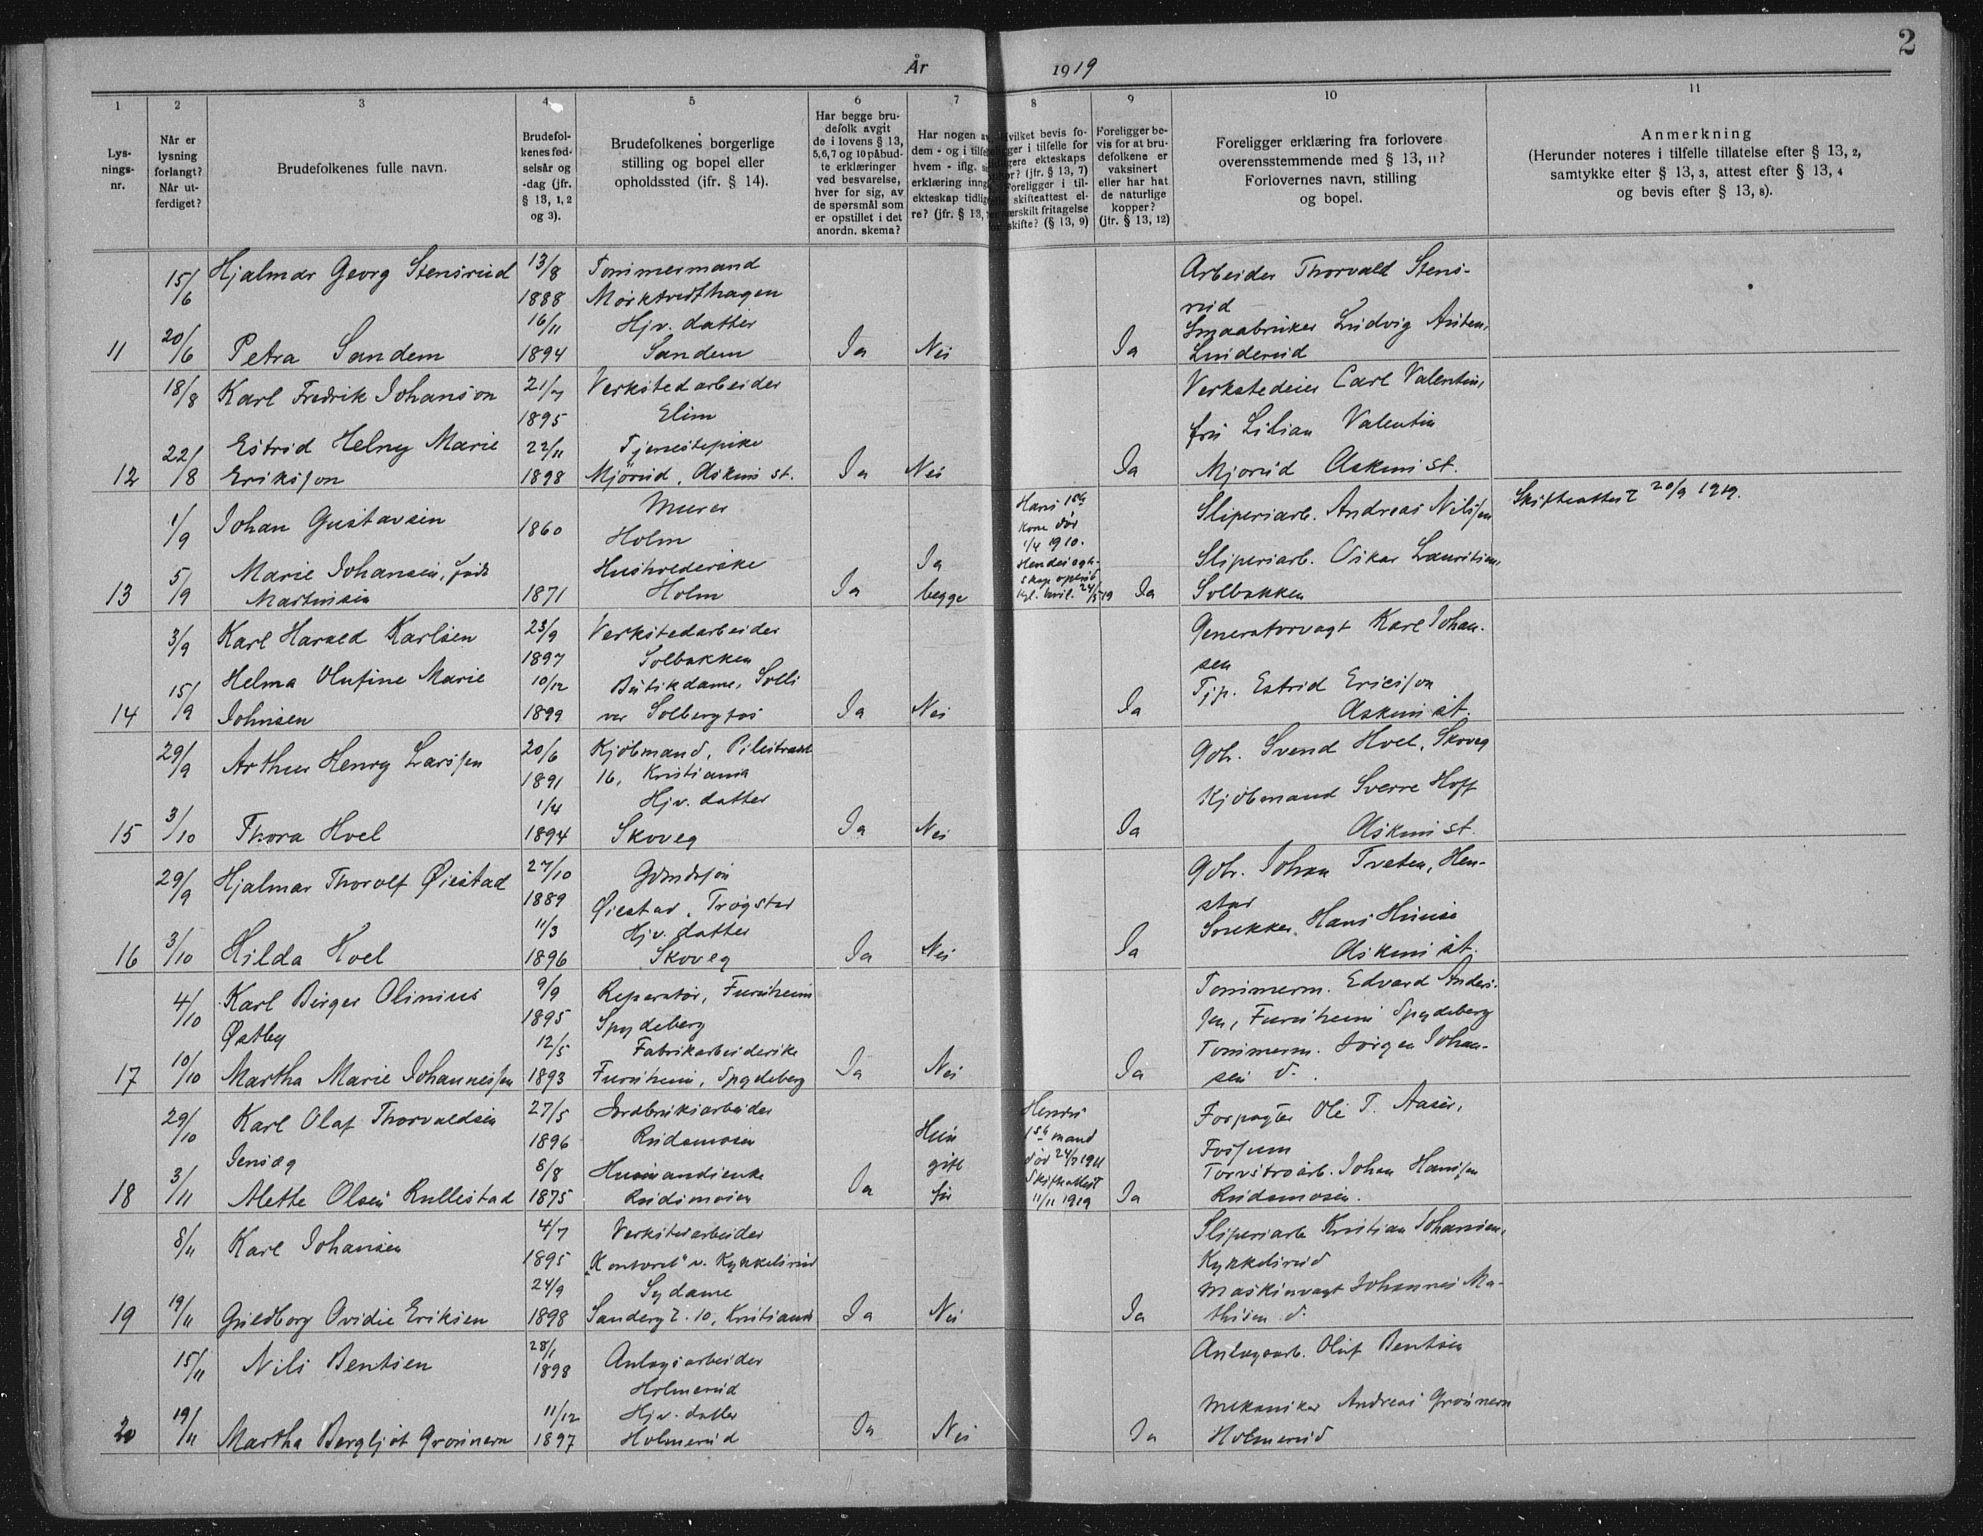 2
År 1919
1
2
3
4
5
6
7
8
9
10
11
Lys-
nings-
nr.
Når er
lysning
forlangt?
Når ut-
ferdiget?
Brudefolkenes fulle navn.
Brudefol-
kenes fød-
selsår og
-dag (jfr.
§ 13, 1, 2
og 3).
Brudefolkenes borgerlige
stilling og bopel eller
opholdssted (jfr. § 14).
Har begge bru-
defolk avgit
de i lovens § 13,
5, 6, 7 og 10 påbud-
te erklæringer
ved besvarelse,
hver for sig, av
de spørsmål som
er opstillet i det
anordn. skema?
Har nogen av
dem - og i tilfelle
hvem - iflg.
erklæring inng
ekteskap tidlig
re? (jfr. § 13,
Hvilket bevis fo-
ligger i tilfelle for
tidligere ekteskaps
ophør? (jfr. § 13, 7)
Foreligger i til-
felle skifteattest el-
ler særskilt fritagelse
for skifte? (§ 13, 9)
Foreligger be-
vis for at bru-
defolkene er
vaksinert
eller har hat
de naturlige
kopper?
(jfr. § 13, 12)
Foreligger erklæring fra forlovere
overensstemmende med § 13, 11?
Forlovernes navn, stilling
og bopel.
Anmerkning
(Herunder noteres i tilfelle tillatelse efter § 13, 2,
samtykke efter § 13, 3, attest efter § 13, 4
og bevis efter § 13, 8).
11
15/6
20/6
Hjalmar Georg Stensrud
Petra Sandem
13/8
1888
16/11
1894
Tømmermand
Mørktvedthagen
Hjv. datter
Sandem
Ja
Nei
Ja
Arbeider Thorvald Stens-
rud
Smaabruker Ludvig Anton,
Linderud
12
18/8
22/8
Karl Fredrik Johanson
Estrid Helny Marie
Eriksson
21/7
1895
22/11
1898
Verkstedarbeider
Elim
Tjenestepike
Mjørud, Askim st.
Ja
Nei
Ja
Verkstedeier Carl Valentin,
fru Lilian Valentin
Mjørud Askim st.
13
1/9
5/9
Johan Gustavsen
Marie Johansen, født
Martinsen
1860
1871
Murer
Holm
Husholderske
Holm
Ja
Ja
begge
Hans 1ste
kone død
1/4 1910.
Hendes egte-
skap opløst
Ja
Sliperiarb. Andreas Nilssen
Sliperiarb. Oskar Lauritsen,
Solbakken
Skifteattest 20/9 1919.
14
3/9
15/9
Karl Harald Karlsen
Helma Olufine Marie
Johnsen
23/9
1897
10/12
1899
Verkstedarbeider
Solbakken
Butikdame, Solli
ver Solbergfos
Ja
Nei
Ja
Generatorvagt Karl Johan-
sen
Tjp. Estrid Ericsson
Askim st.
15
29/9
3/10
Arthur Henry Larssen
Thora Hoel
20/6
1891
1/4
1894
Kjøbmand, Pilestrædet
16, Kristiania
Hjv. datter
Skoveg
Ja
Nei
Ja
Gbr. Svend Hoel, Skoveg
Kjøbmand Sverre Hoff
Askim st.
16
29/9
3/10
Hjalmar Thorolf Øiestad
Hilda Hoel
27/10
1889
11/3
1896
Gaardssøn
Øiestad, Trøgstad
Hjv. datter
Skoveg
Ja
Nei
Ja
Gbr. Johan Tveten, Hen-
stad
Snekker Hans
Askim st.
17
4/10
10/10
Karl Birger Olinius
Østby
Martha Marie Johannessen
9/9
1895
12/5
1893
Reparatør, Furuheim
Spydeberg
Fabrikarbeiderske
Furuheim, Spydeberg
Ja
Nei
Ja
Tømmerm. Edvard Anders-
sen, Furuheim Spydeberg
Tømmerm. Jørgen Johan-
sen d.
18
29/10
3/11
Karl Olaf Thorvaldsen
Jensæg
Alette Olsen Rullestad
27/5
1896
8/8
1875
Jordbruksarbeider
Rudsmosen
Husmandsenke
Rudsmosen
Ja
Hun
gift
før
Hendes
1ste mand
død 24/7 1911
Skifteattest
11/11 1919
Ja
Forpagter Ole T. Aasen,
Fossum
Torvstrøarb. Johan Hanssen
Rudsmosen.
19
8/11
19/11
Karl Johansen
Guedborg Ovidie Eriksen
4/7
1895
24/9
1898
Verkstedarbeider
"Kontoret" v. Kykkelsrud
Sydame
Sandergt. 10, Kristiania
Ja
Nei
Ja
Sliperiarb Kristian Johansen,
Kykkelsrud
Maskinvagt Johannes Ma-
thisen d.
20
15/11
19/11
Nils Bentsen
Martha Bergljot Grønnern
28/1
1898
11/12
1897
Anlægsarbeider
Holmerud
Hjv. datter
Holmerud
Ja
Nei
Ja
Anlægsarb. Oluf Bentsen
Mekaniker Andreas Grønnern
Holmerud